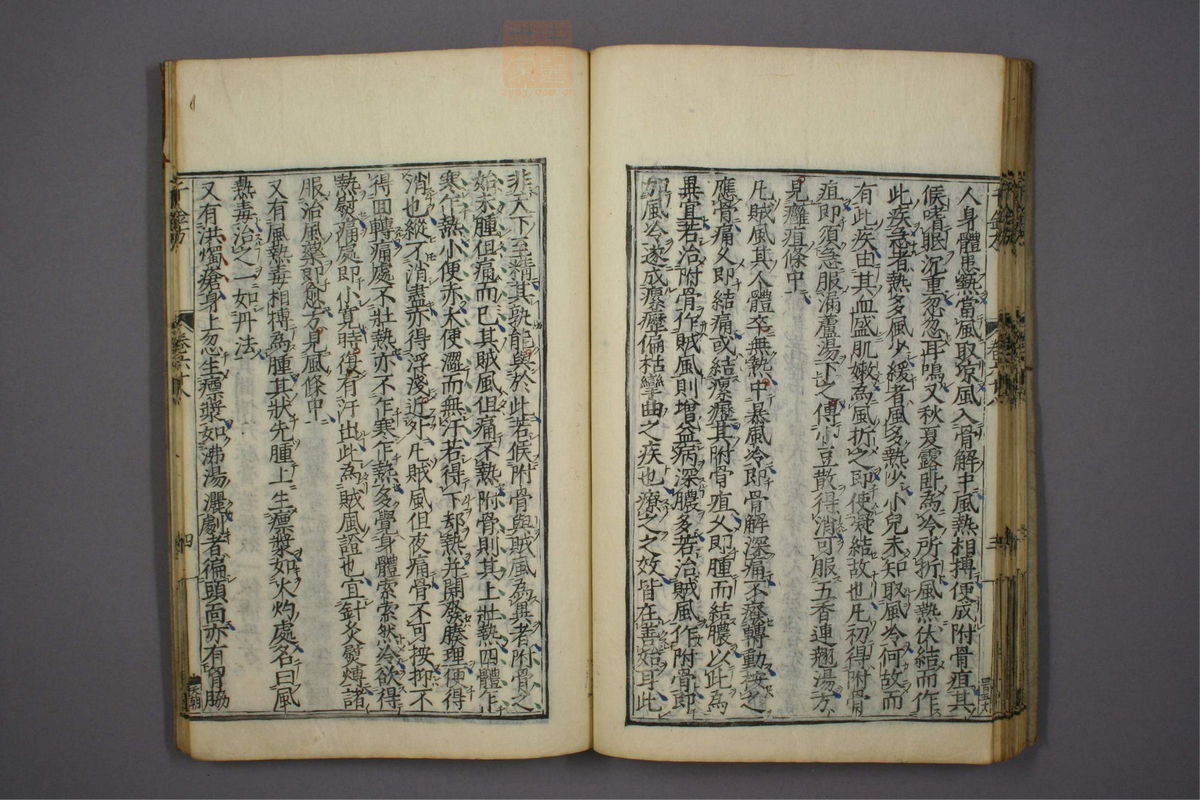 人身體患熱當風取涼風入骨解中風熱相搏便成附骨疽其
候嗜眠沉重忽忽耳鳴又秋夏露臥爲冷所折風熱伏結而作
此疾急者熱多風少緩者風多熱少小兒未知取風冷何故而
有此疾由其血盛肌嫩爲風折之即便凝結故也凡初得附骨
疽即須急服漏蘆湯下之傅小豆散得消可服五香連翹湯方
見癰疽條中
凡賊風其人體卒無熱中暴風冷即骨解深痛不可轉動按之
應骨痛久即結痛或結瘰癧其附骨疽久即腫而結膿以此爲
異宜若治附骨作賊風則增益病深膿多若治賊風作附骨即
加風冷遂成瘰癧偏枯攣曲之疾也療之之效皆在善始耳此
非天下至精其孰能與於此若候附骨與賊風爲異者附骨之
始未腫但痛而已其賊風但痛不熱附骨則其上壯熱四體作
寒作熱小便赤大便澀而無汗若得下却熱并開發腠理便得
消也縱不消盡亦得浮淺近外凡賊風但夜痛骨不可按抑不
得回轉痛處不壯熱亦不作寒作熱多覺身體索索然冷欲得
熱熨痛處即小寬時復有汗出此爲賊風證也宜針灸熨煿諸
服治風藥即愈方見風條中
又有風熱毒相搏爲腫其狀先腫上生癮漿如火灼處名曰風
熱毒治之一如丹法
又有洪燭瘡身上忽生癮漿如沸湯灑劇者徧頭面亦有胷脇
卷六
四